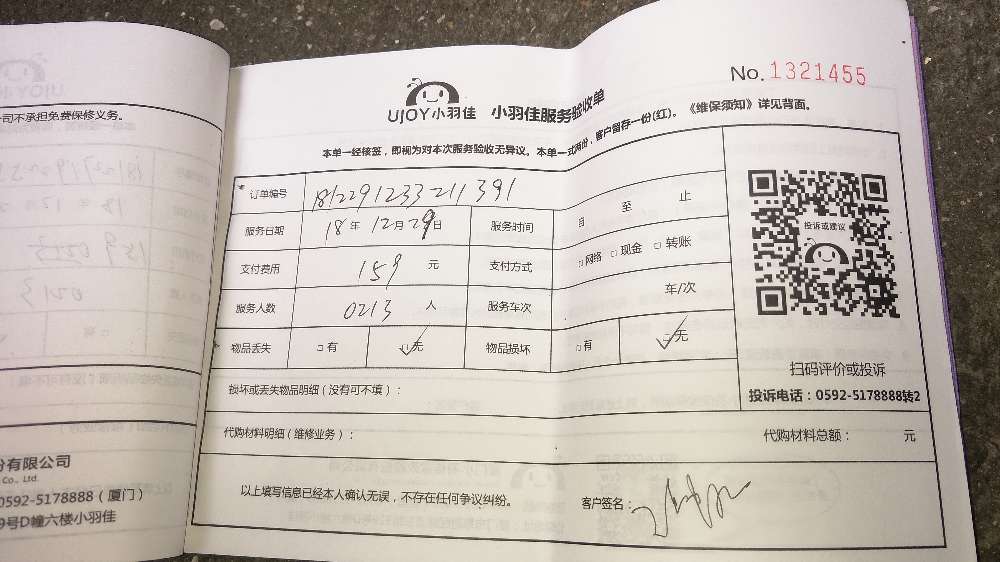 司不承担免费保修义务。
份有限公司
Co., Ltd.
0592-5178888（厦门）
9号D幢六楼小羽佳
No. 1321455
UJOY小羽佳 小羽佳服务验收单
本单一经核签，即视为对本次服务验收无异议。本单一式两份，客户留存一份(红)。《维保须知》详见背面。
订单编号 181229123321 1391
服务日期 18 年 12 月 29 日 服务时间 自 至 止
支付费用 159 元 支付方式 □网络 □现金 □转账
服务人数 0213 人 服务车次 车/次
物品丢失 □有 ☑无 物品损坏 □有 ☑无
损坏或丢失物品明细（没有可不填）：
代购材料明细（维修业务）： 代购材料总额： 元
以上填写信息已经本人确认无误，不存在任何争议纠纷。 客户签名：
投诉或建议
扫码评价或投诉
投诉电话：0592-5178888转2